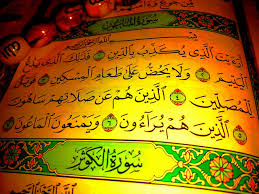 سُورَةُ المَاعُونِ
أَرَءَيْتَ الَّذِي يُكَذِّبُ بِالدِّينِ ١ فَذَٰلِكَ الَّذِي
الْيَتِيمَ ٢ وَلَا يَحُضُّ عَلَىٰ طَعَامِ الْمِسْكِينِ ٣
لِلْمُصَلِّينَ ٤ الَّذِينَ هُمْ عَن صَلَاتِهِمْ سَاهُونَ ٥
الَّذِينَ هُمْ يُرَاءُونَ ٦ وَيَمْنَعُونَ الْمَاعُونَ ٧
سُورَةُ الكَوْثَرِ